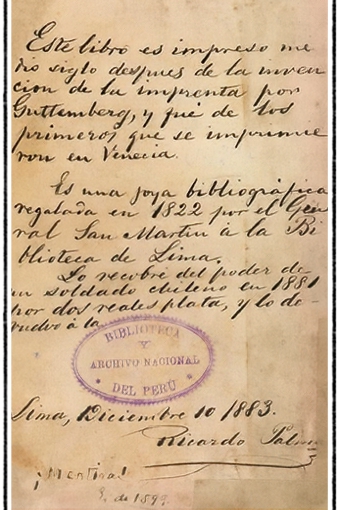 Este libro es impreso me
dio siglo despues de la inven
cion de la imprenta por
Guttemberg, y fué de los
primeros que se imprimie
ron en Venecia.
Es una joya bibliográfica
regalada en 1822 por el Gene
ral San Martin á la Bi
blioteca de Lima.
Lo recobré del poder de
un soldado chileno en 1881
por dos reales plata, y lo de-
vuelvo á la
BIBLIOTECA
Y
ARCHIVO NACIONAL
DEL PERÚ
Lima, Diciembre 10 1883.
Ricardo Palma
¡Mentira!
de 1899